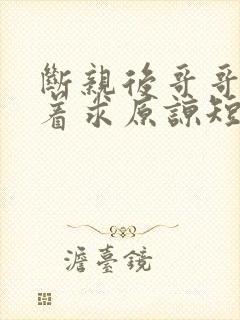 斷親後哥哥
着求原諒短
澹臺鏡